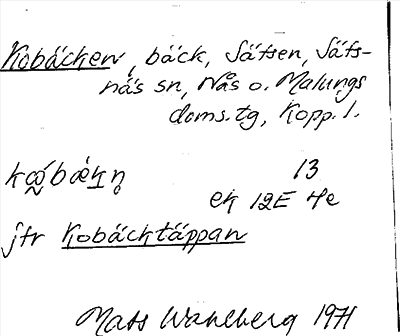 Kobäcken, bäck, Sätsen, Säfs-
näs sn, Nås o. Malungs
doms.tg, Kopp. l.
13
ek 12E 4e
jfr Kobäcktäppan
Mats Wahlberg 1971